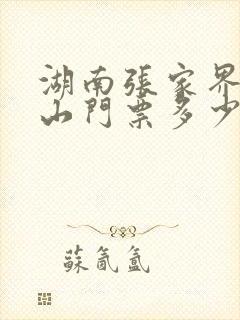 湖南張家界
山門票多少
蘇氤氳